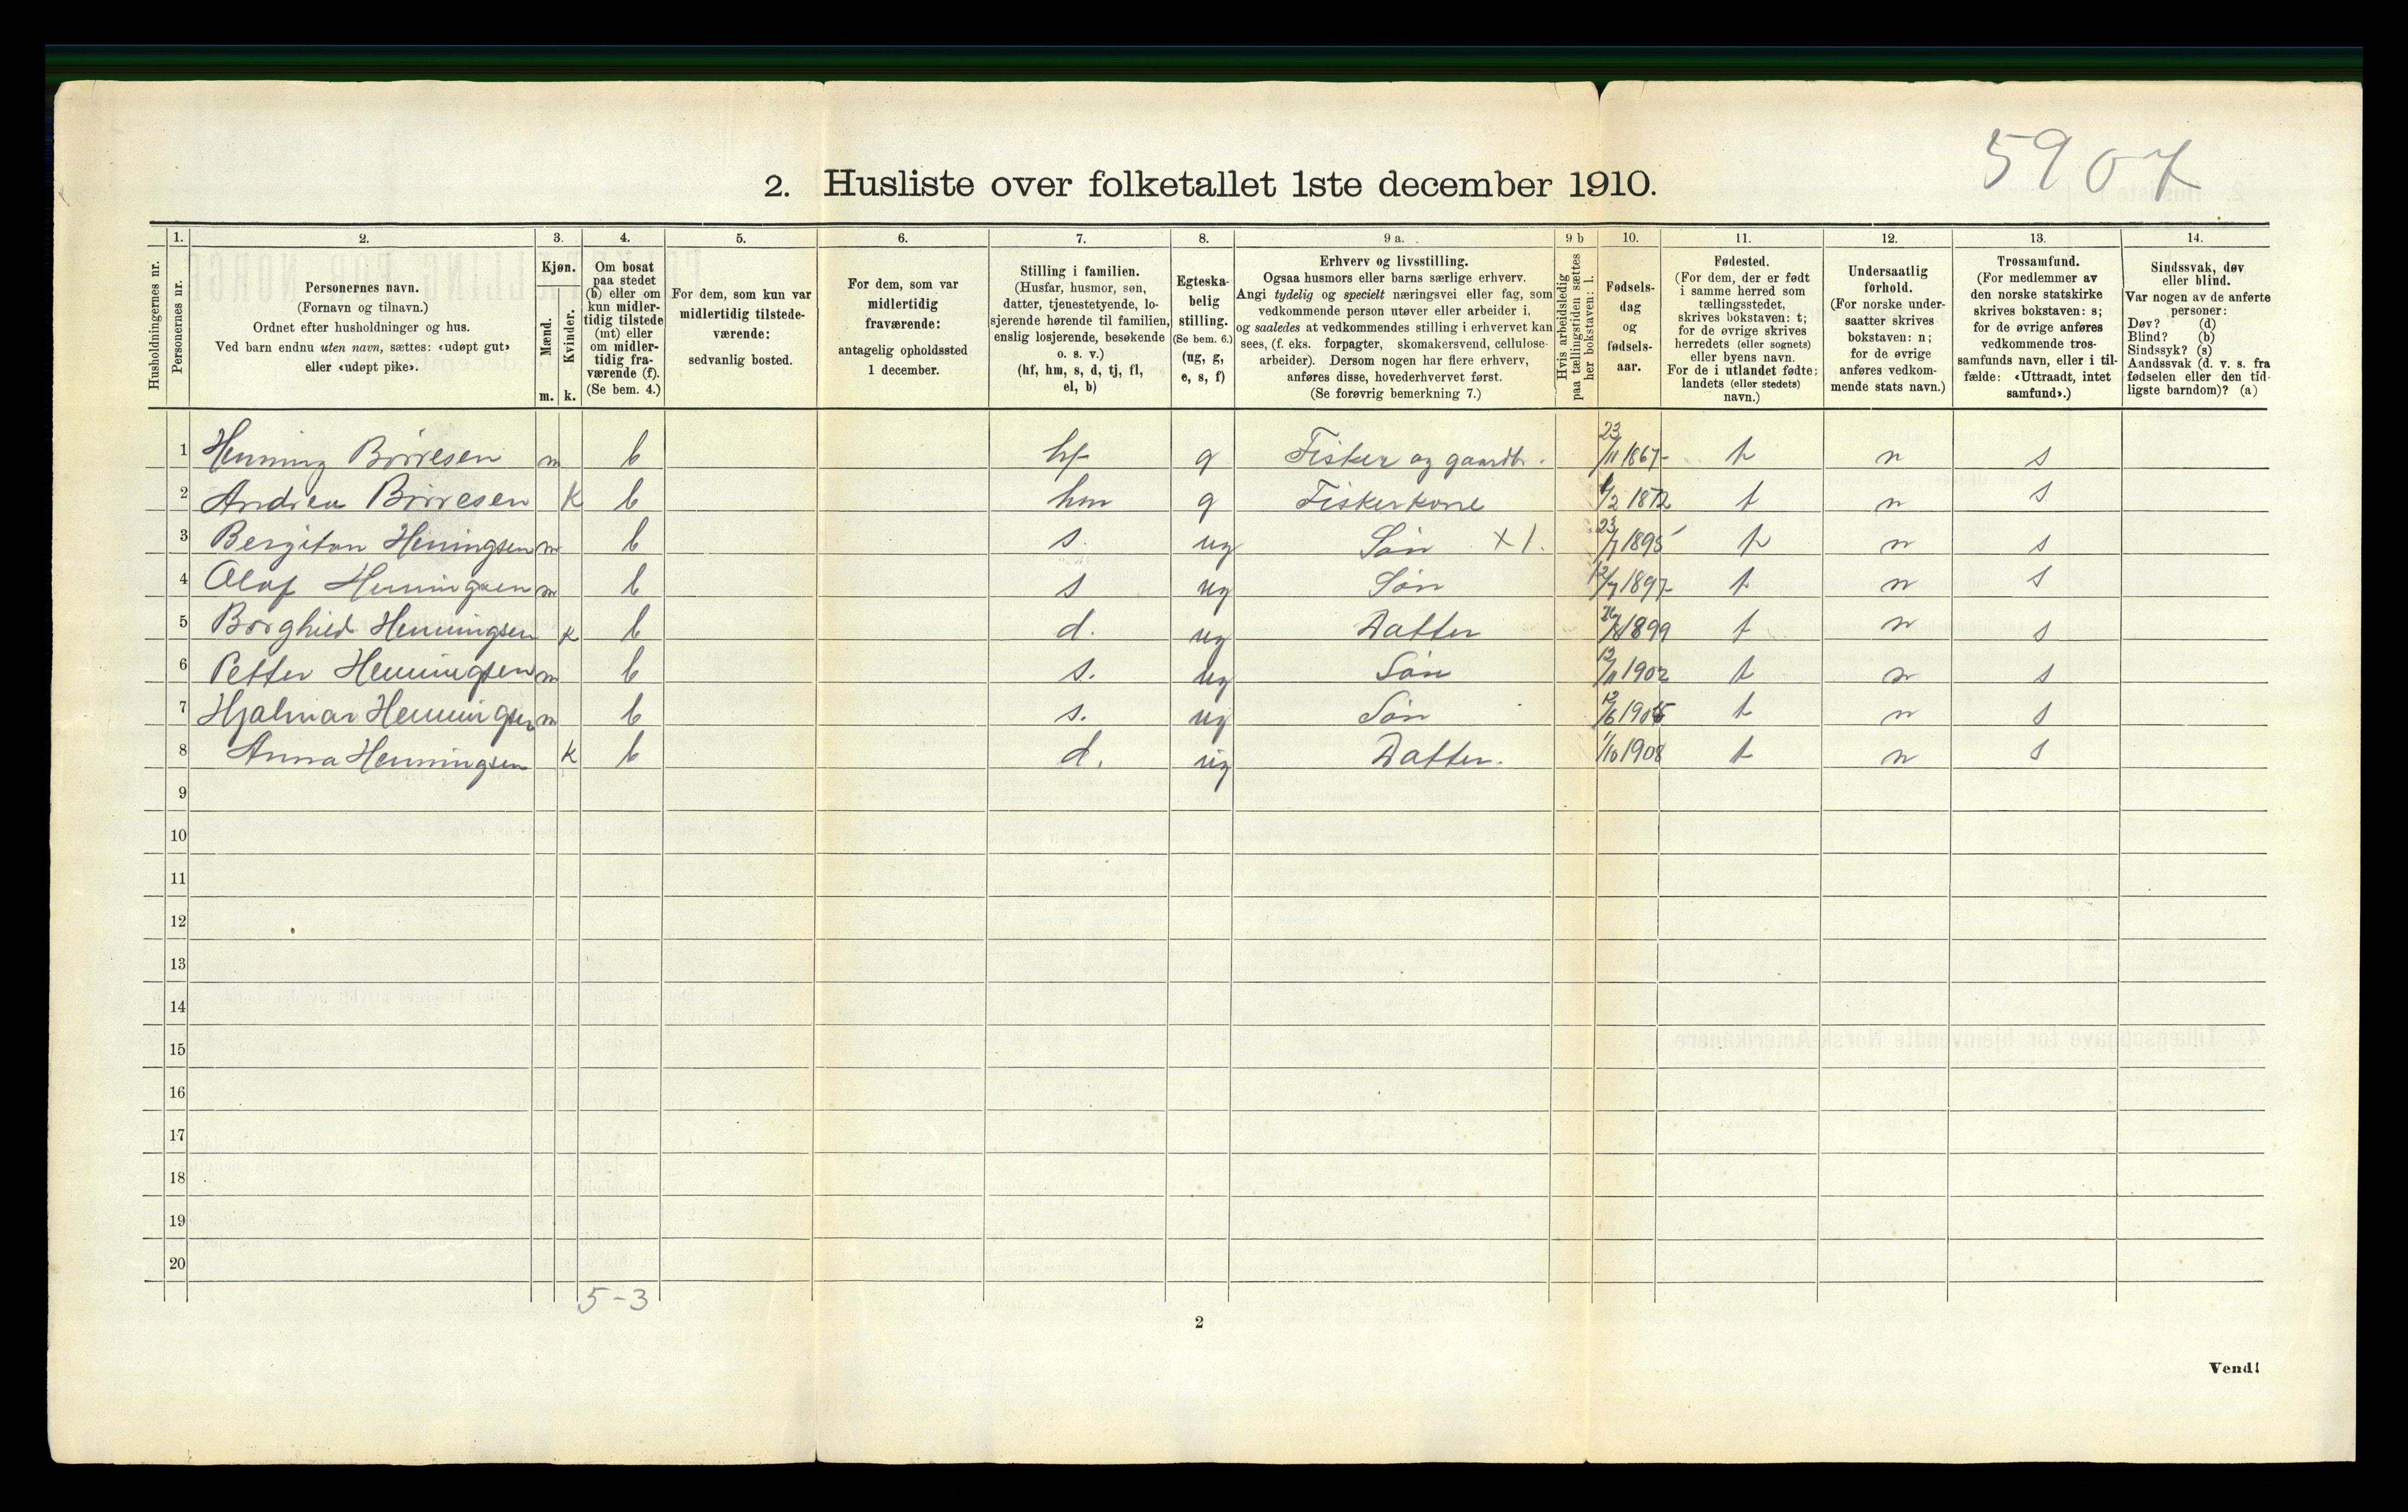 5907
2. Husliste over folketallet 1ste december 1910.
Husholdningernes nr.
1. Personernes nr.
2. Personernes navn.
(Fornavn og tilnavn.)
Ordnet efter husholdninger og hus.
Ved barn endnu uten navn, sættes: «udøpt gut»
eller «udøpt pike».
3. Kjøn.
Mænd. Kvinder.
m. k.
4. Om bosat
paa stedet
(b) eller om
kun midler-
tidig tilstede
(mt) eller
om midler-
tidig fra-
værende (f).
(Se bem. 4.)
5. For dem, som kun var
midlertidig tilstede-
værende:
sedvanlig bosted.
6. For dem, som var
midlertidig
fraværende:
antagelig opholdssted
1 december.
7. Stilling i familien.
(Husfar, husmor, søn,
datter, tjenestetyende, lo-
sjerende hørende til familien,
enslig losjerende, besøkende
o. s. v.)
(hf, hm, s, d, tj, fl,
el, b)
8. Egteska-
belig
stilling.
(Se bem. 6.)
(ug, g,
e, s, f)
9 a. Erhverv og livsstilling.
Ogsaa husmors eller barns særlige erhverv.
Angi tydelig og specielt næringsvei eller fag, som
vedkommende person utøver eller arbeider i,
og saaledes at vedkommendes stilling i erhvervet kan
sees, (f. eks. forpagter, skomakersvend, cellulose-
arbeider). Dersom nogen har flere erhverv,
anføres disse, hovederhvervet først.
(Se forøvrig bemerkning 7.)
9 b Hvis arbeidsledig
paa tællingstiden sættes
her bokstaven: l.
10. Fødsels-
dag
og
fødsels-
aar.
11. Fødested.
(For dem, der er født
i samme herred som
tællingsstedet,
skrives bokstaven: t;
for de øvrige skrives
herredets (eller sognets)
eller byens navn.
For de i utlandet fødte:
landets (eller stedets)
navn.)
12. Undersaatlig
forhold.
(For norske under-
saatter skrives
bokstaven: n;
for de øvrige
anføres vedkom-
mende stats navn.)
13. Trossamfund.
(For medlemmer av
den norske statskirke
skrives bokstaven: s;
for de øvrige anføres
vedkommende tros-
samfunds navn, eller i til-
fælde: «Uttraadt, intet
samfund».)
14. Sindssvak, døv
eller blind.
Var nogen av de anførte
personer:
Døv? (d)
Blind? (b)
Sindssyk? (s)
Aandssvak (d. v. s. fra
fødselen eller den tid-
ligste barndom)? (a)
1 Henning Børresen m b hf g Fisker og gaardbr. 23/11 1867 t n s
2 Andrea Børresen k b hm g Fiskerkone /2 1872 t n s
3 Bergiton Heningsen m b s. ug Søn x 1. 23/7 1895 t n s
4 Olaf Henningsen m b s ug Søn 12/7 1897 t n s
5 Borghild Henningsen k b d. ug Datter 1899 t n s
6 Petter Henningsen m b s. ug Søn 13/11 1902 t n s
7 Hjalmar Henningsen m b s. ug Søn 12/6 t n s
8 Anna Henningsen k b d. ug Datter. 1/10 1908 t n s
9
10
11
12
13
14
15
16
17
18
19
20
5-3
2
Vend!